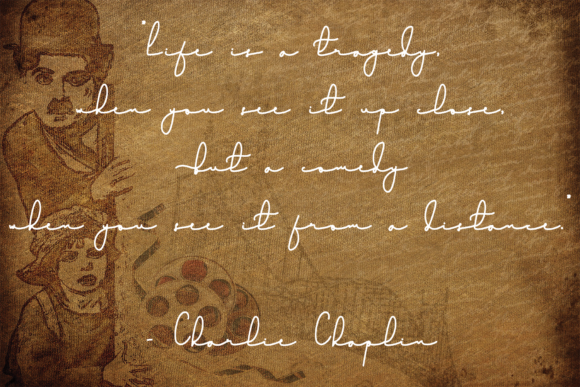 "Life is a tragedy,
when you see it up close,
but a comedy
when you see it from a distance."
- Charlie Chaplin